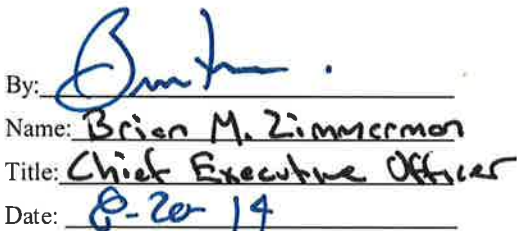 By:
Name: Brian M. Zimmerman
Title: Chief Executive Officer
Date: 8-20-14